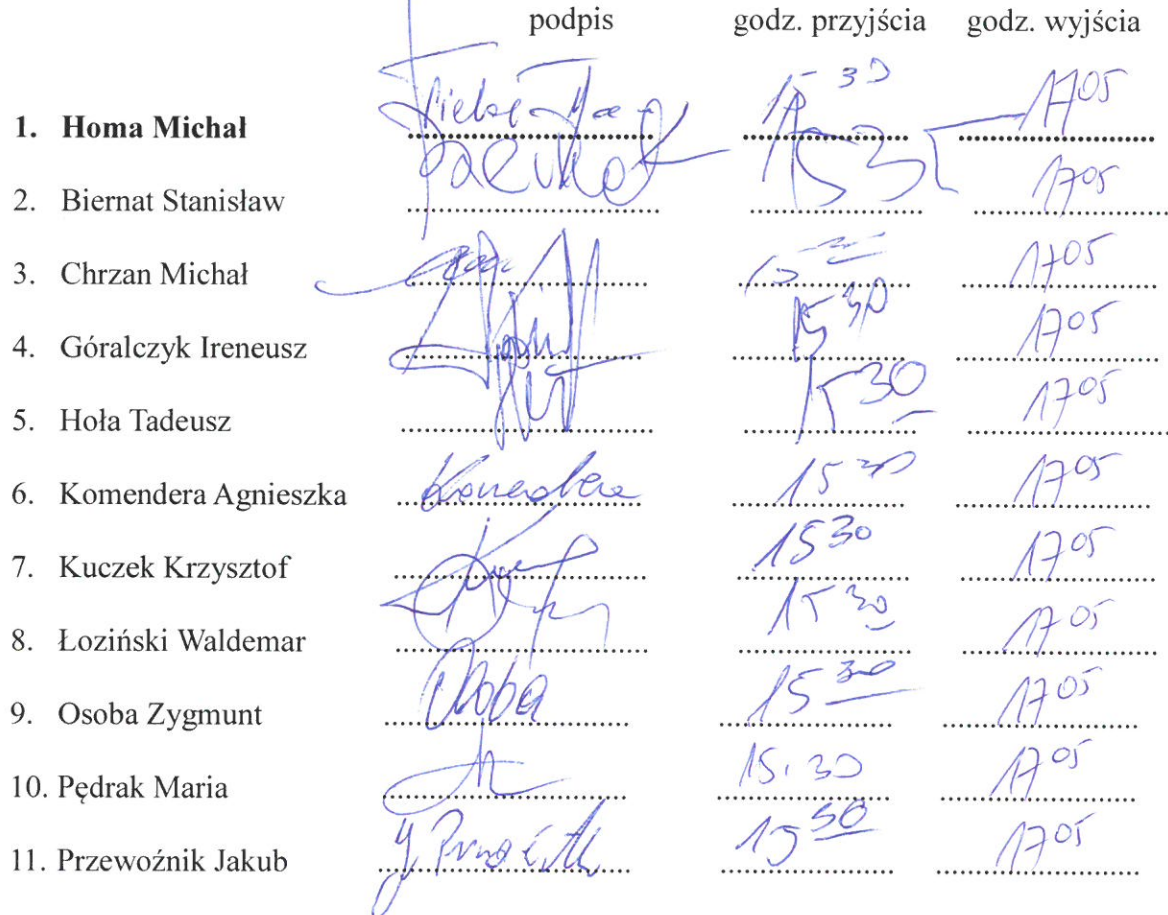 podpis godz. przyjścia godz. wyjścia
1. Homa Michał 15 30 17 05
2. Biernat Stanisław 1530 17 05
3. Chrzan Michał 17 05
4. Góralczyk Ireneusz 15 30 17 05
5. Hoła Tadeusz 15 30 17 05
6. Komendera Agnieszka Komendera 15 30 17 05
7. Kuczek Krzysztof 15 30 17 05
8. Łoziński Waldemar 15 30 17 05
9. Osoba Zygmunt Osoba 15 30 17 05
10. Pędrak Maria 15.30 17 05
11. Przewoźnik Jakub 17 05